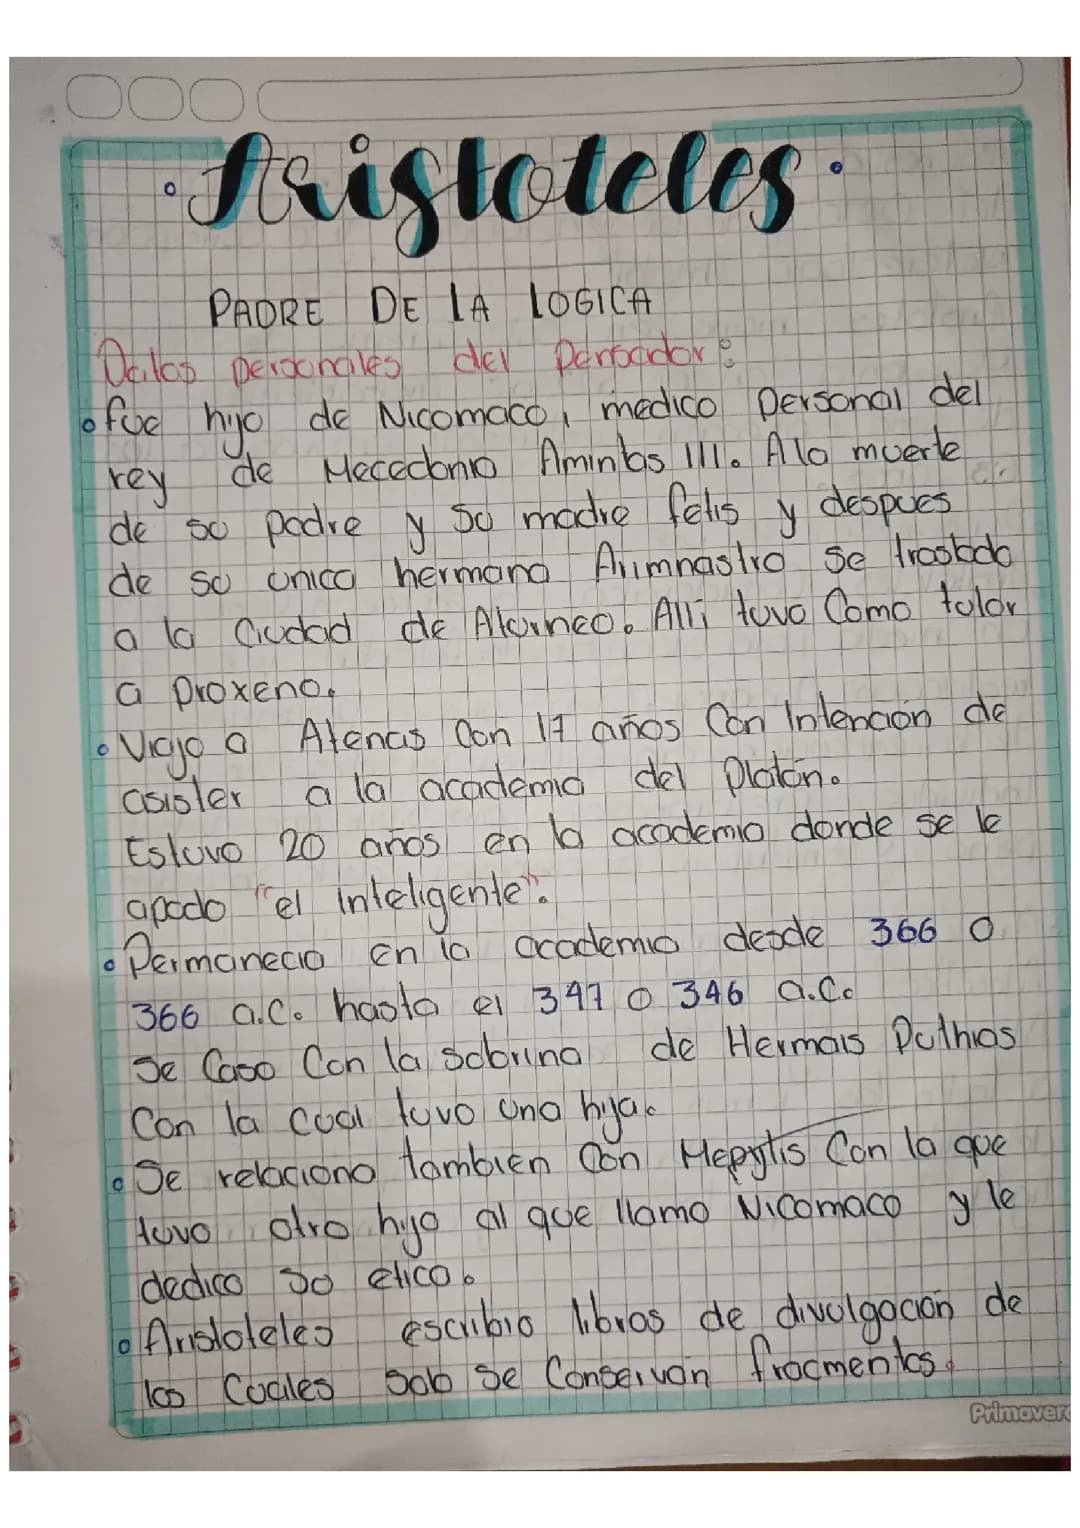 Aristoteles
PADRE DE LA LOGICA
Datos personales del Pensador:
fue hijo de Nicomaco, medico personal del
rey de Mecedonio Amintas III. A la muerte
de su padre y su madre felis y despues
de su unico hermano Arimnastro se traslado
a la Ciudad de Atarneo. Alli tuvo Como tutor
a proxeno.
Viajo a Atenas Con 17 años Con Intención de
asister a la academia del Platón.
Estuvo 20 años en la academia donde se le
apodo "el inteligente".
Permanecio en la academia desde 366 o
366 a.C. hasta el 347 o 346 a.C.
Se Caso Con la sobrina de Hermais Puthias
Con la cual tuvo una hija.
Se relaciono tambien Con Hepytis Con la que
tuvo otro hijo al que llamo Nicomaco y le
dedico su etica.
Aristoteles escribio libros de divulgación de
los Cuales solo se Conservan fracmentos.
Primavera